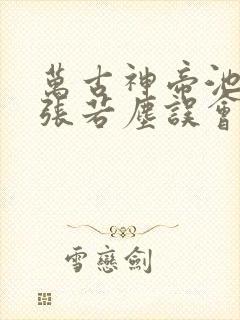 萬古神帝池
張若塵誤會
雪戀劍